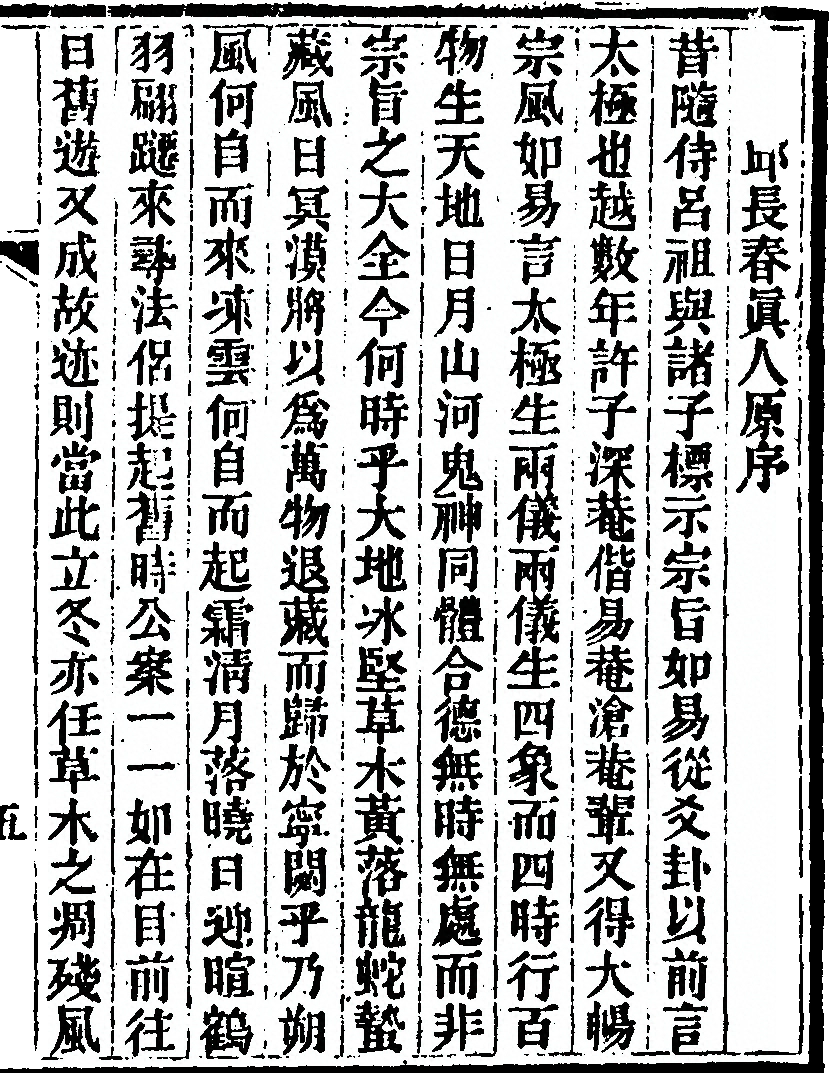 邱長春眞人原序
昔隨侍呂祖與諸子標示宗旨如易從爻卦以前言
太極也越數年許子深菴偕易菴滄菴輩又得大暢
宗風如易言太極生兩儀兩儀生四象而四時行百
物生天地日月山河鬼神同體合德無時無處而非
宗旨之大全今何時乎大地冰堅草木黃落龍蛇蟄
藏風日冥漠將以爲萬物退藏而歸於寧闃乎乃朔
風何自而來凍雲何自而起霜清月落曉日迎暄鶴
羽翩躚來尋法侶提起舊時公案一一如在目前往
日舊遊又成故迹則當此立冬亦任草木之凋殘風
五